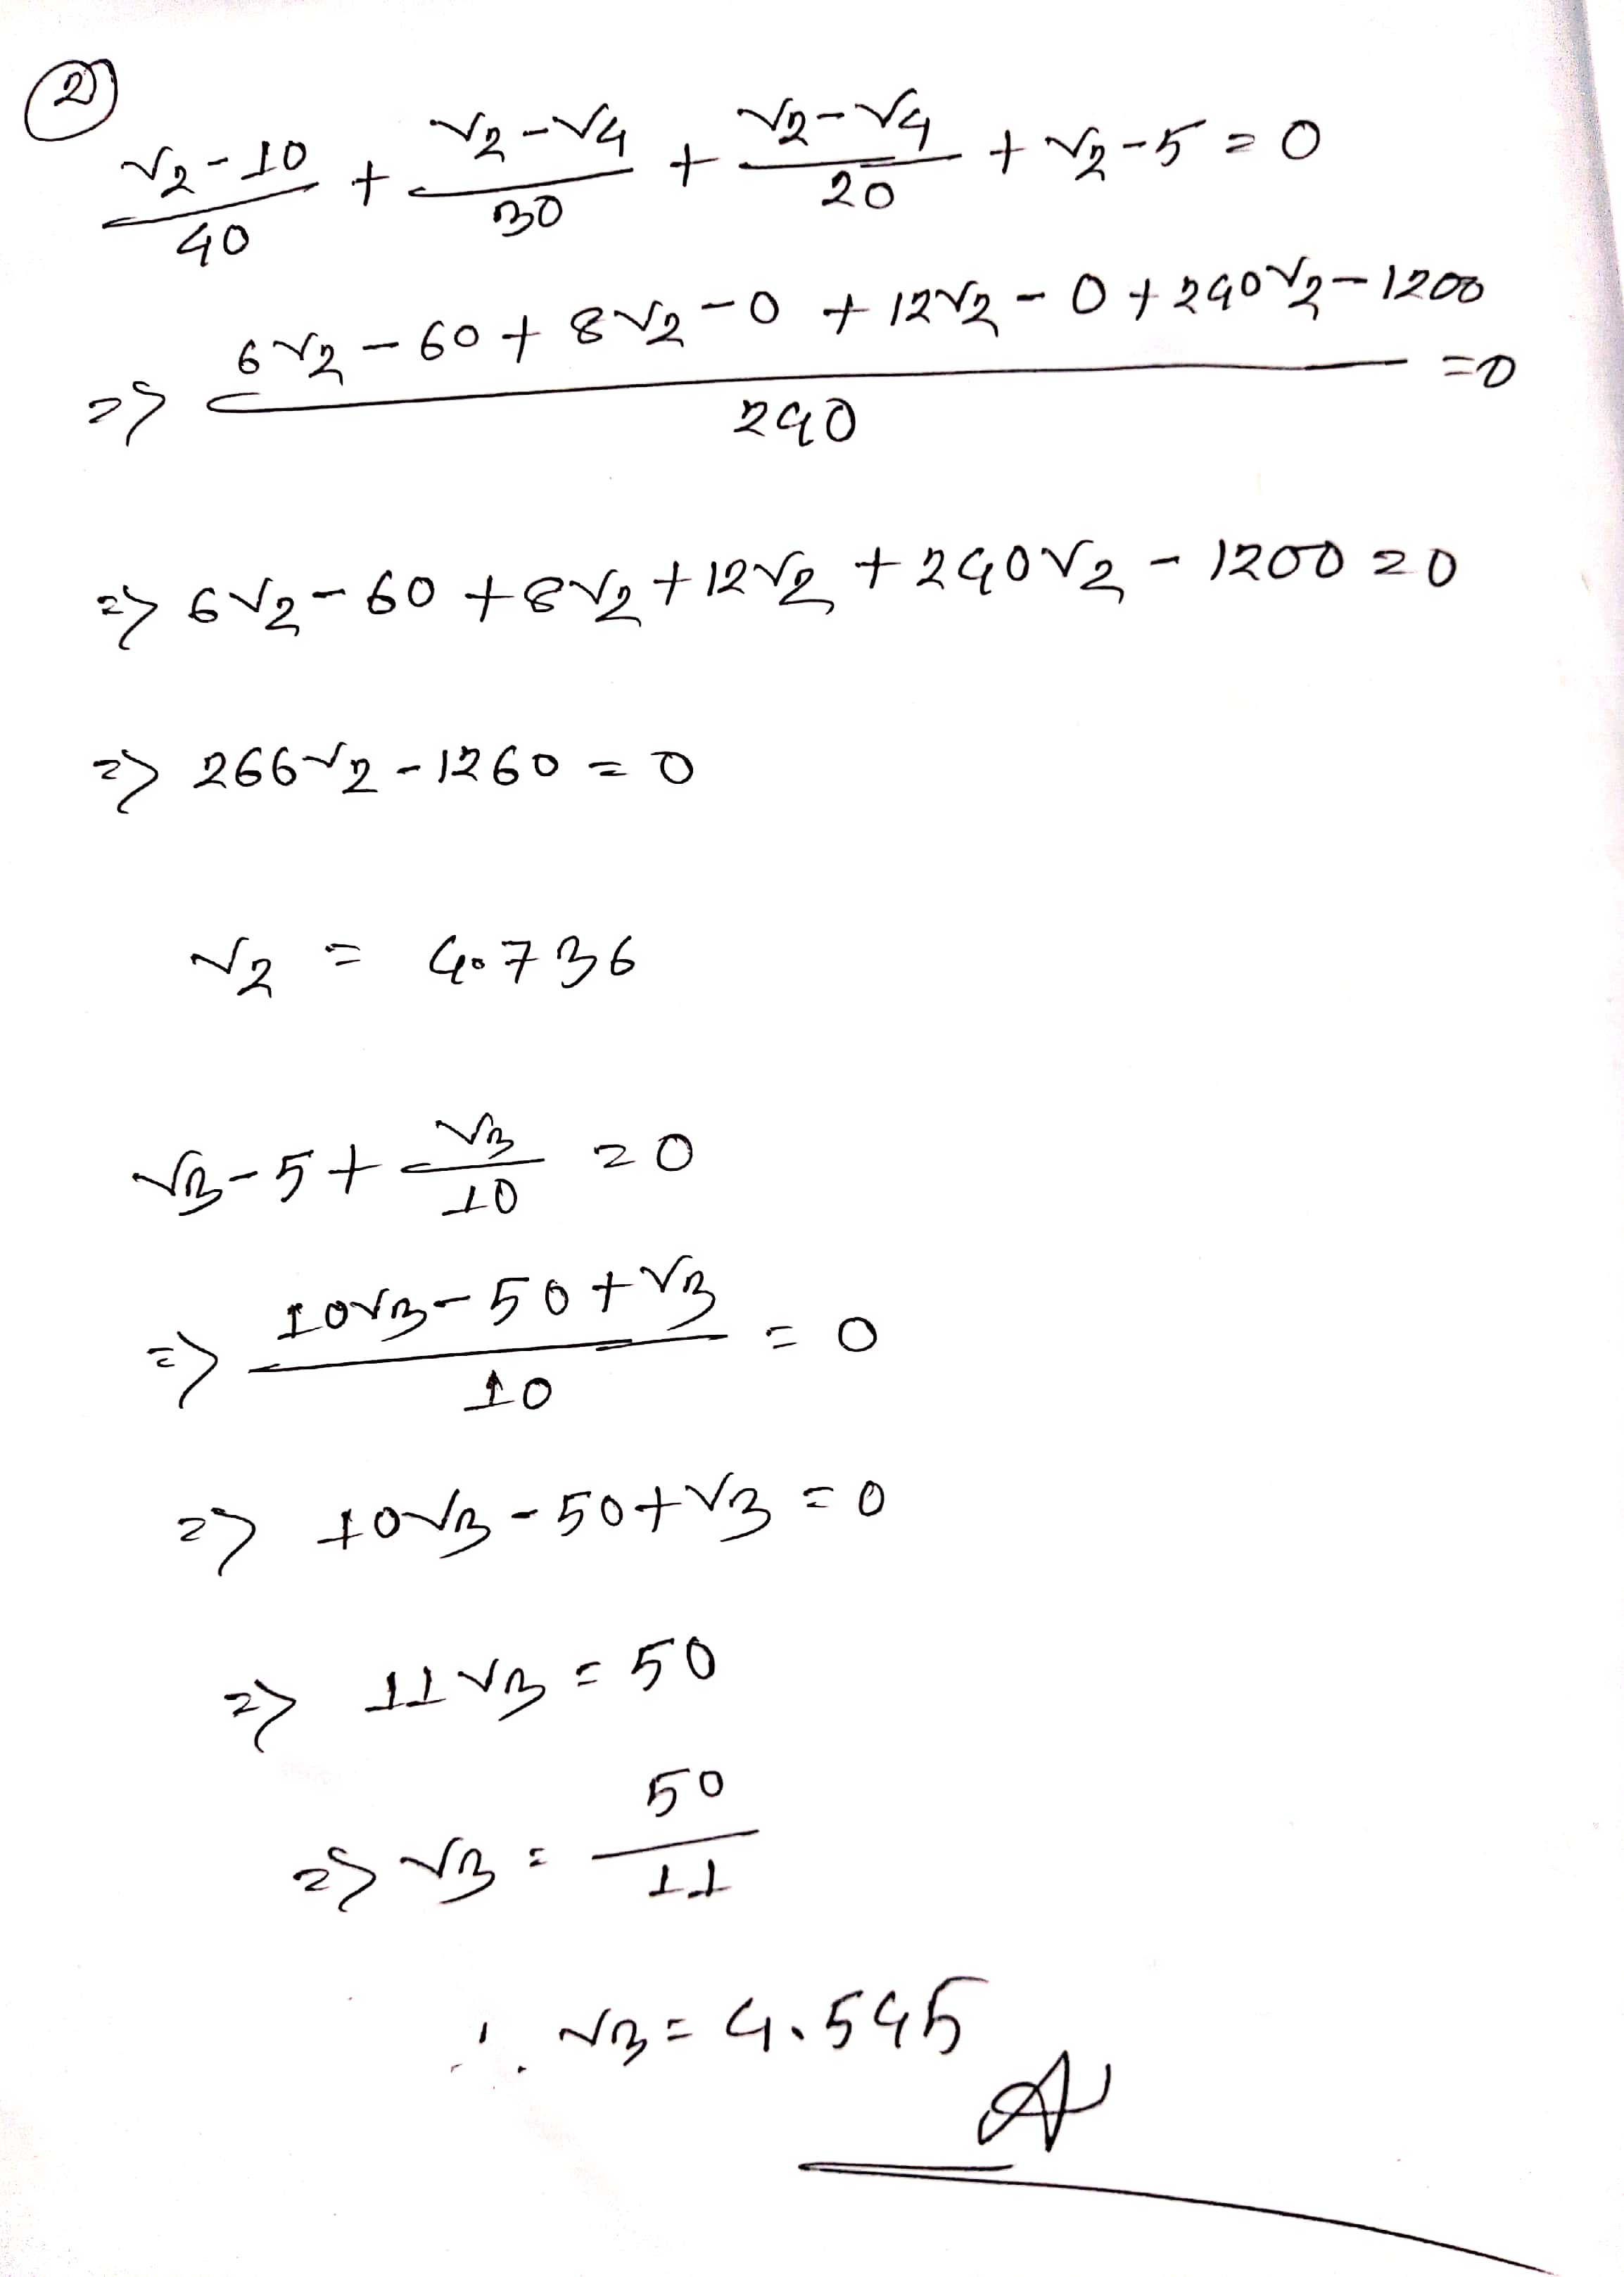 2)
(V2-10)/40 + (V2-V4)/30 + (V2-V4)/20 + V2-5 = 0
=> (6V2 - 60 + 8V2 - 0 + 12V2 - 0 + 240V2 - 1200)/240 = 0
=> 6V2 - 60 + 8V2 + 12V2 + 240V2 - 1200 = 0
=> 266V2 - 1260 = 0
V2 = 4.736
V3 - 5 + V3/10 = 0
=> (10V3 - 50 + V3)/10 = 0
=> 10V3 - 50 + V3 = 0
=> 11V3 = 50
=> V3 = 50/11
∴ V3 = 4.545